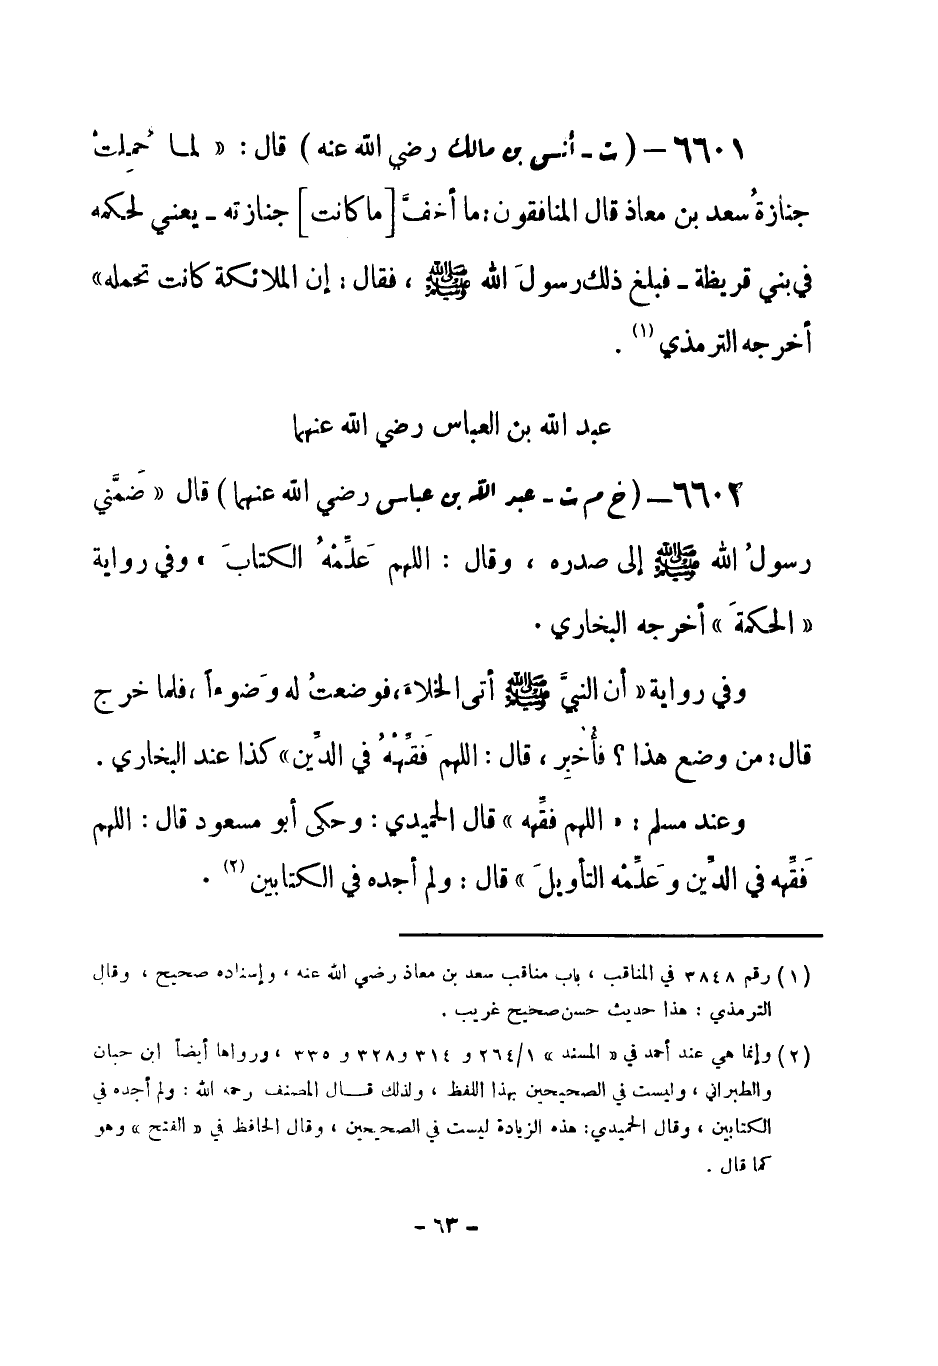 ٦٦٠١ – ( ت ـ أنس بن مالك رضي الله عنه ) قال : « لمـا حُمِلتْ
جنازةُ سعد بن معاذ قال المنافقون : ما أخفَّ [ ما كانت ] جنازته ـ يعني لحكمه
في بني قريظة ـ فبلغ ذلك رسولَ الله ﷺ ، فقال : إن الملائكة كانت تحمله »
أخرجه الترمذي (١) .
عبد الله بن العباس رضي الله عنهما
٦٦٠٢ – ( خ م ت ـ عبد الله بن عباس رضي الله عنهما ) قال « ضَمَّني
رسولُ الله ﷺ إلى صدره ، وقال : اللهم عَلِّمْهُ الكتابَ » وفي رواية
« الحكمةَ » أخرجه البخاري .
وفي رواية « أن النبيَّ ﷺ أتى الخلاءَ ، فوضعتُ له وَضوءاً ، فلما خرج
قال : من وضع هذا ؟ فأُخْبِر ، قال : اللهم فَقِّهْهُ في الدِّين » كذا عند البخاري .
وعند مسلم : « اللهم فقِّهه » قال الحميدي : وحكى أبو مسعود قال : اللهم
فَقِّهه في الدِّين وعَلِّمْه التأويلَ » قال : ولم أجده في الكتابين (٢) .
(١) رقم ٣٨٤٨ في المناقب ، باب مناقب سعد بن معاذ رضي الله عنه ، وإسناده صحيح ، وقال
الترمذي : هذا حديث حسن صحيح غريب .
(٢) وإنما هي عند أحمد في « المسند » ٢٦٤/١ و ٣١٤ و ٣٢٨ و ٣٣٥ ، ورواها أيضاً ابن حبان
والطبراني ، وليست في الصحيحين بهذا اللفظ ، ولذلك قـــال المصنف رحمه الله : ولم أجده في
الكتابين ، وقال الحميدي : هذه الزيادة ليست في الصحيحين ، وقال الحافظ في « الفتح » وهو
كما قال .
– ٦٣ –